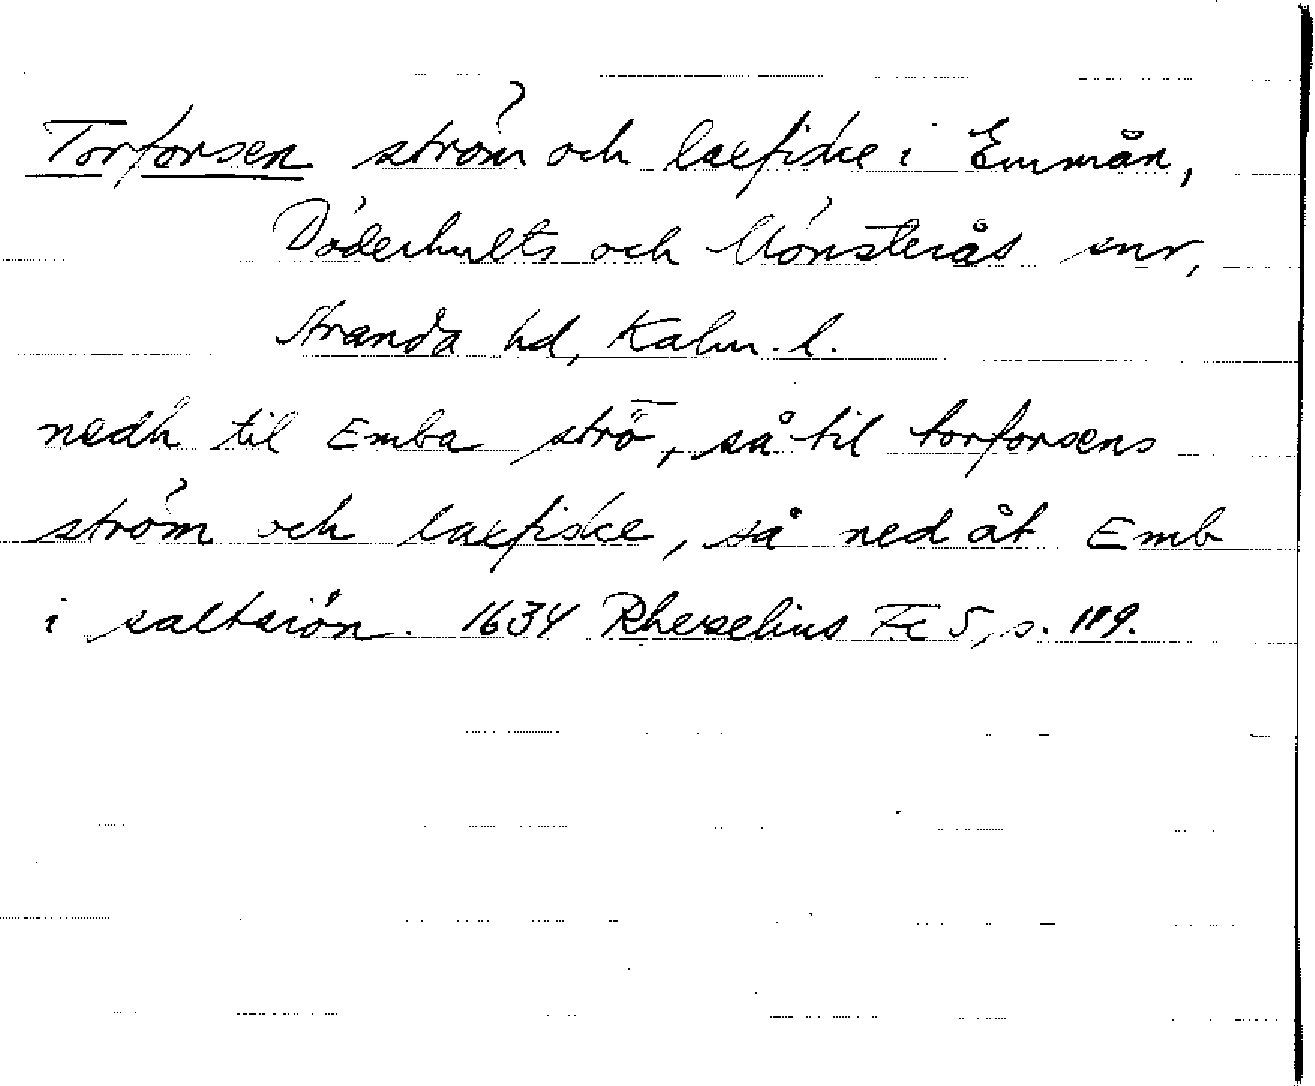 Torforsen ström och laxfiske i Emmån,
Döderhults och Mönsterås snr,
Stranda hd, Kalm. l.
nedh til Emba strö̅, så til torforsens
ström och laxfiske, så ned åt Emb
i saltsiön. 1634 Rhezelius Fc 5, s. 119.